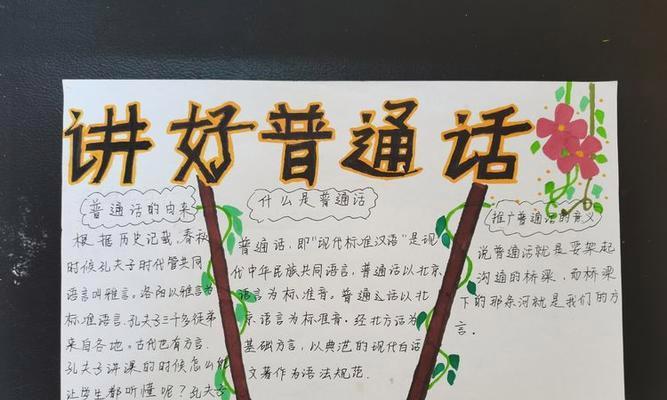 讲好普通话
普通话的由来
根据历史记载,春秋
时候孔夫子时代管共同
语言叫雅言。洛阳以雅言为
标准语言,孔夫子三千多徒弟
来自各地。古代也有方言.
孔夫子讲课的时候怎么能
让学生都听懂呢?孔夫子
什么是普通话
普通话,即“现代标准汉语”是现
代中华民族共同语言,普通话以北京
语言为标准音。普通这话以北
京语言为标准音.经北方话为
基础方言,以典范的现代白话
文著作为语法规范.
推广普通话的意义
说普通话就是要架起
沟通的桥梁,而桥梁
下的那条河就是我们的方
言.